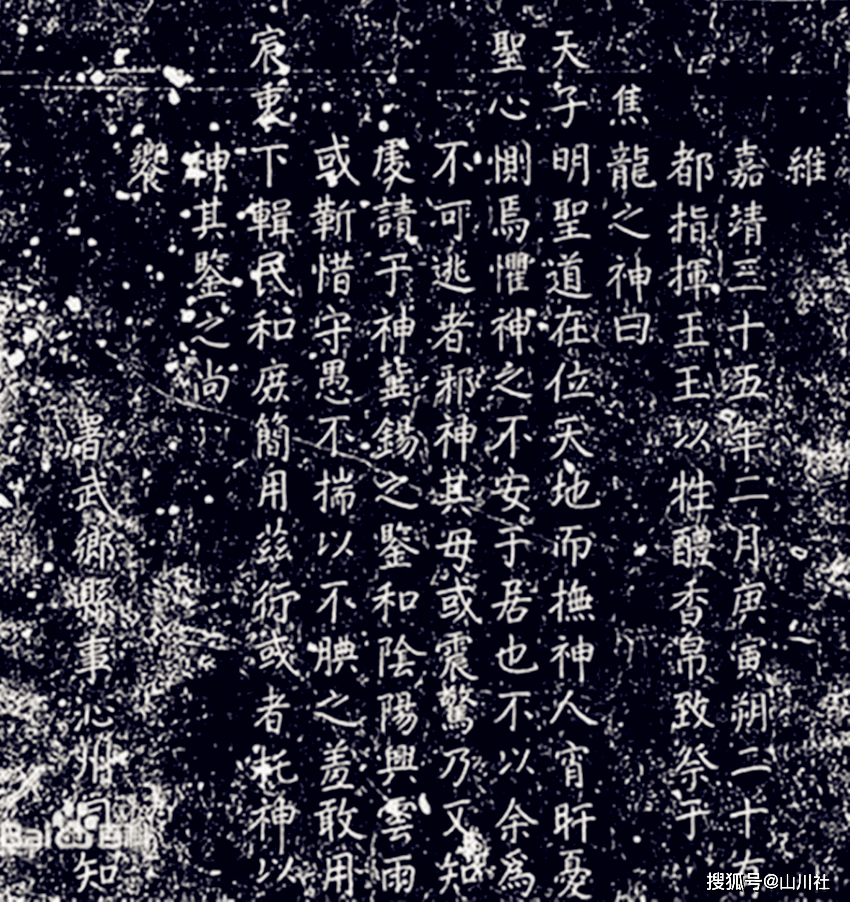 維
嘉靖三十五年二月庚寅朔二十有
都指揮王王以牲醴香帛致祭于
焦龍之神曰
天子明聖道在位天地而撫神人宵旰憂
聖心惻焉懼神之不安于居也不以余為
不可逃者邪神其毋或震驚乃又知
虔請于神冀錫之鑒和陰陽興雲雨
或靳惜守愚不揣以不腆之羞敢用
宸衷下輯民和庶簡用茲衍或者神以
神其鑒之尚
饗
署武鄉縣事沁州同知
Bai百科
搜狐号@山川社